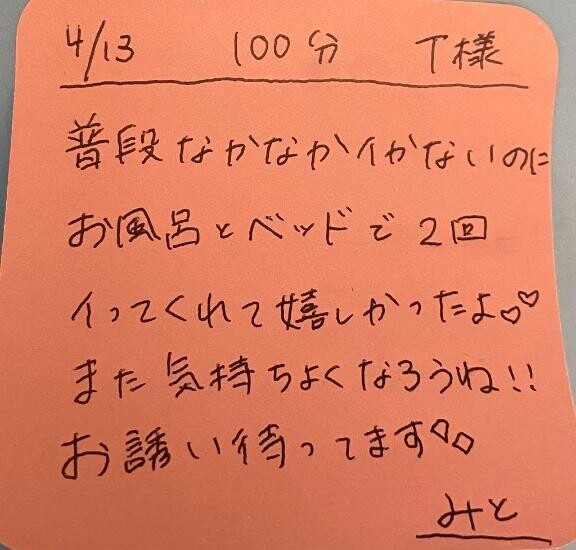 4/13 100分 T様
普段なかなかイかないのに
お風呂とベッドで2回
イってくれて嬉しかったよ♡♡
また気持ちよくなろうね!!
お誘い待ってます♡♡
みと